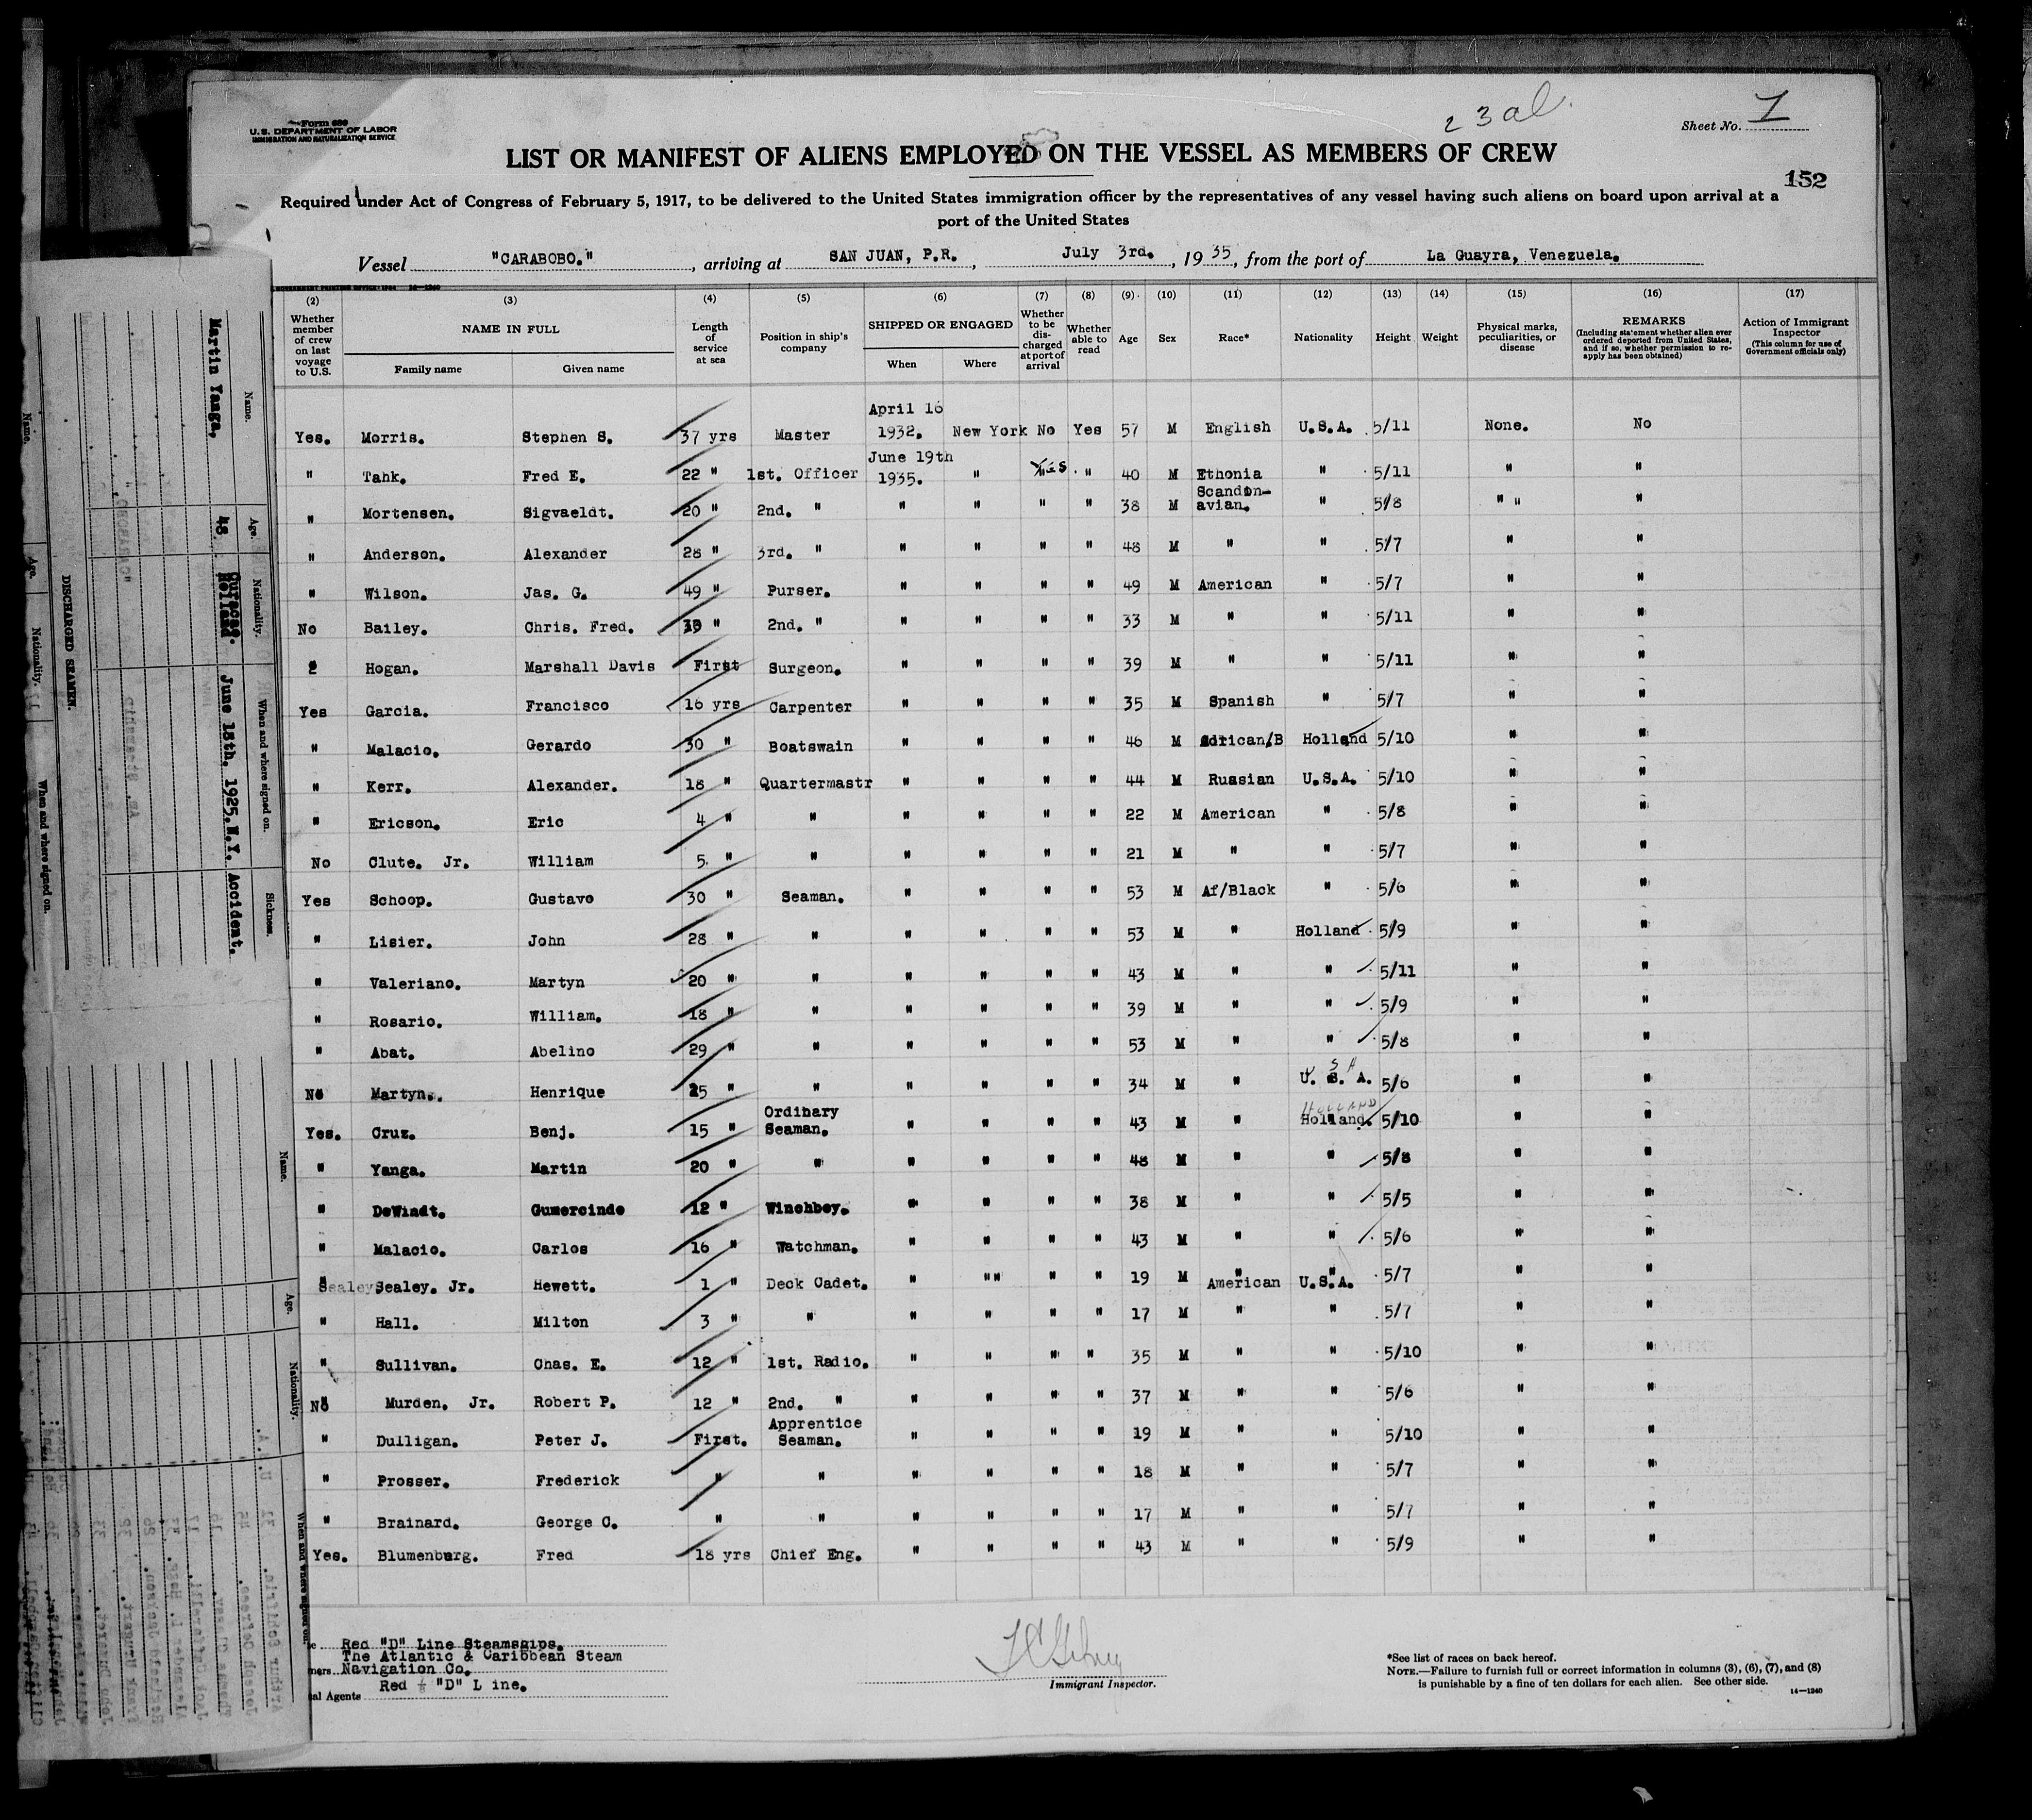 Form 689
U.S. DEPARTMENT OF LABOR
IMMIGRATION AND NATURALIZATION SERVICE
23 al.
Sheet No. 1
LIST OR MANIFEST OF ALIENS EMPLOYED ON THE VESSEL AS MEMBERS OF CREW
152
Required under Act of Congress of February 5, 1917, to be delivered to the United States immigration officer by the representatives of any vessel having such aliens on board upon arrival at a
port of the United States
Vessel "CARABOBO.", arriving at SAN JUAN, P.R., July 3rd., 1935, from the port of La Guayra, Venezuela.
(2) (3) (4) (5) (6) (7) (8) (9) (10) (11) (12) (13) (14) (15) (16) (17)
Whether member of crew on last voyage to U.S. NAME IN FULL Family name Given name Length of service at sea Position in ship's company SHIPPED OR ENGAGED When Where Whether to be discharged at port of arrival Whether able to read Age Sex Race* Nationality Height Weight Physical marks, peculiarities, or disease REMARKS (Including statement whether alien ever ordered deported from United States, and if so, whether permission to reapply has been obtained) Action of Immigrant Inspector (This column for use of Government officials only)
Yes. Morris. Stephen S. 37 yrs Master April 16 1932. New York No Yes 57 M English U.S.A. 5/11 None. No
" Tahk. Fred E. 22 " 1st. Officer June 19th 1935. " Yes " 40 M Ethonia " 5/11 " "
" Mortensen. Sigvaeldt. 20 " 2nd. " " " " " 38 M Scandin-avian. " 5/8 " " "
" Anderson. Alexander 28 " 3rd. " " " " " 48 M " " 5/7 " "
" Wilson. Jas. G. 49 " Purser. " " " " 49 M American " 5/7 " "
No Bailey. Chris. Fred. " 2nd. " " " " " 33 M " " 5/11 " "
Hogan. Marshall Davis First Surgeon. " " " " 39 M " " 5/11 " "
Yes Garcia. Francisco 16 yrs Carpenter " " " " 35 M Spanish " 5/7 " "
" Malacio. Gerardo 30 " Boatswain " " " " 46 M Holland 5/10 " "
" Kerr. Alexander. 18 " Quartermastr " " " " 44 M Russian U.S.A. 5/10 " "
" Ericson. Eric 4 " " " " " " 22 M American " 5/8 " "
No Clute. Jr. William 5. " " " " " " 21 M " " 5/7 " "
Yes Schoop. Gustavo 30 " Seaman. " " " " 53 M Af/Black " 5/6 " "
" Lisier. John 28 " " " " " " 53 M " Holland 5/9 " "
" Valeriano. Martyn 20 " " " " " " 43 M " " 5/11 " "
" Rosario. William. 18 " " " " " " 39 M " " 5/9 " "
" Abat. Abelino 29 " " " " " " 53 M " " 5/8 " "
No Martyn. Henrique 25 " " " " " " 34 M " U. S. A. 5/6 " "
Yes. Cruz. Benj. 15 " Ordinary Seaman. " " " " 43 M " HOLLAND Holland. 5/10 " "
" Yanga. Martin 20 " " " " " " 48 M " " 5/8 " "
" DeWindt. Gumercindo 12 " Winchboy. " " " " 38 M " " 5/5 " "
" Malacio. Carlos 16 " Watchman. " " " " 43 M " " 5/6 " "
" Sealey Sealey. Jr. Hewett. 1 " Deck Cadet. " " " " " 19 M American U.S.A. 5/7 " "
" Hall. Milton 3 " " " " " " 17 M " " 5/7 " "
" Sullivan. Chas. E. 12 " 1st. Radio. " " " " 35 M " " 5/10 " "
No Murden. Jr. Robert P. 12 " 2nd. " " " " " 37 M " " 5/6 " "
" Dulligan. Peter J. First. Apprentice Seaman. " " " " 19 M " " 5/10 " "
" Prosser. Frederick " " " " " " 18 M " " 5/7 " "
" Brainard. George C. " " " " " " 17 M " " 5/7 " "
Yes. Blumenburg. Fred 18 yrs Chief Eng. " " " " 43 M " " 5/9 " "
Red "D" Line Steamships.
The Atlantic & Caribbean Steam
Navigation Co.
Red "D" Line.
al Agents
Immigrant Inspector.
*See list of races on back hereof.
NOTE.—Failure to furnish full or correct information in columns (3), (6), (7), and (8)
is punishable by a fine of ten dollars for each alien. See other side.
14—1240
DISCHARGED SEAMEN.
Name. Age. Nationality. When and where signed on. Sickness.
Martin Yanga, 48 Curacao. Holland June 18th, 1925. N.Y. Accident.
Name. Age. Nationality. When and where signed on.